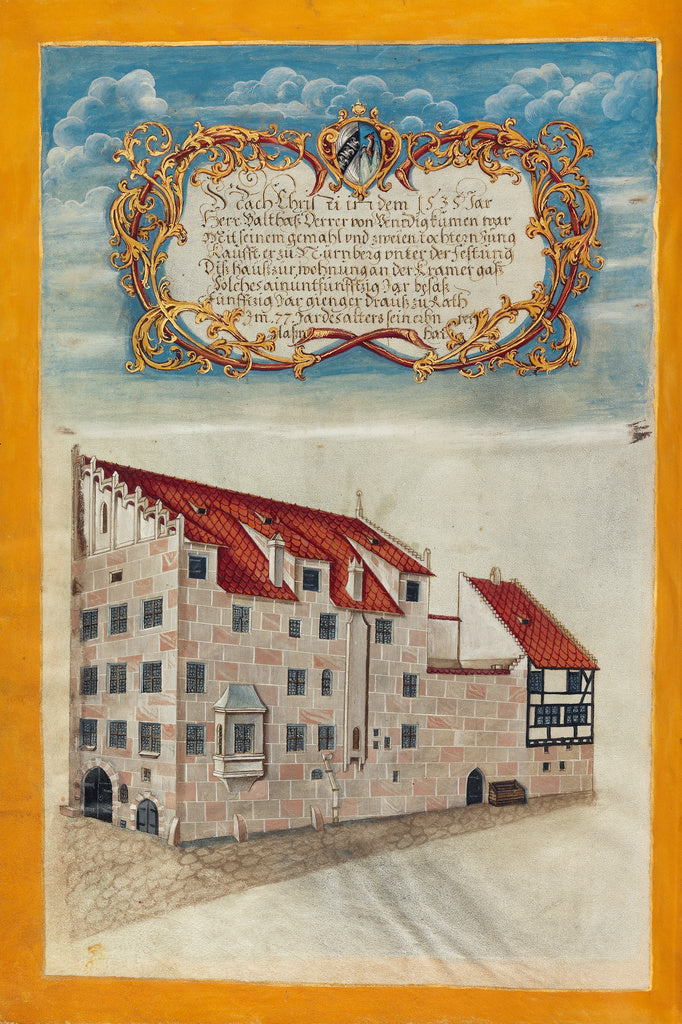 Nach Christi un dem 1535 Jar
Herr Balthaß Derrer von Venidig kumen war
Mit seinem gemahl vnd zweien tochtern Jung
Kaufft er zu Nürnberg vnter der Festung
Diß hauß zur wohnung an der Kramer gaß
Solches ainundfünfftzig Jar besaß
Fünfftzig Jar gienger drauß zu Rath
Im 77 Jar des alters sein